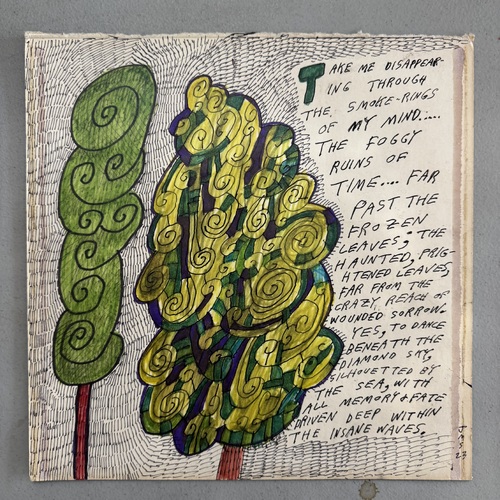 TAKE ME DISAPPEAR-
ING THROUGH
THE SMOKE-RINGS
OF MY MIND.....
THE FOGGY
RUINS OF
TIME.... FAR
PAST THE
FROZEN
LEAVES; THE
HAUNTED, FRIG-
HTENED LEAVES,
FAR FROM THE
CRAZY REACH OF
WOUNDED SORROW.
YES, TO DANCE
BENEATH THE
DIAMOND SKY,
SILHOUETTED BY
THE SEA, WITH
ALL MEMORY + FATE
DRIVEN DEEP WITHIN
THE INSANE WAVES.